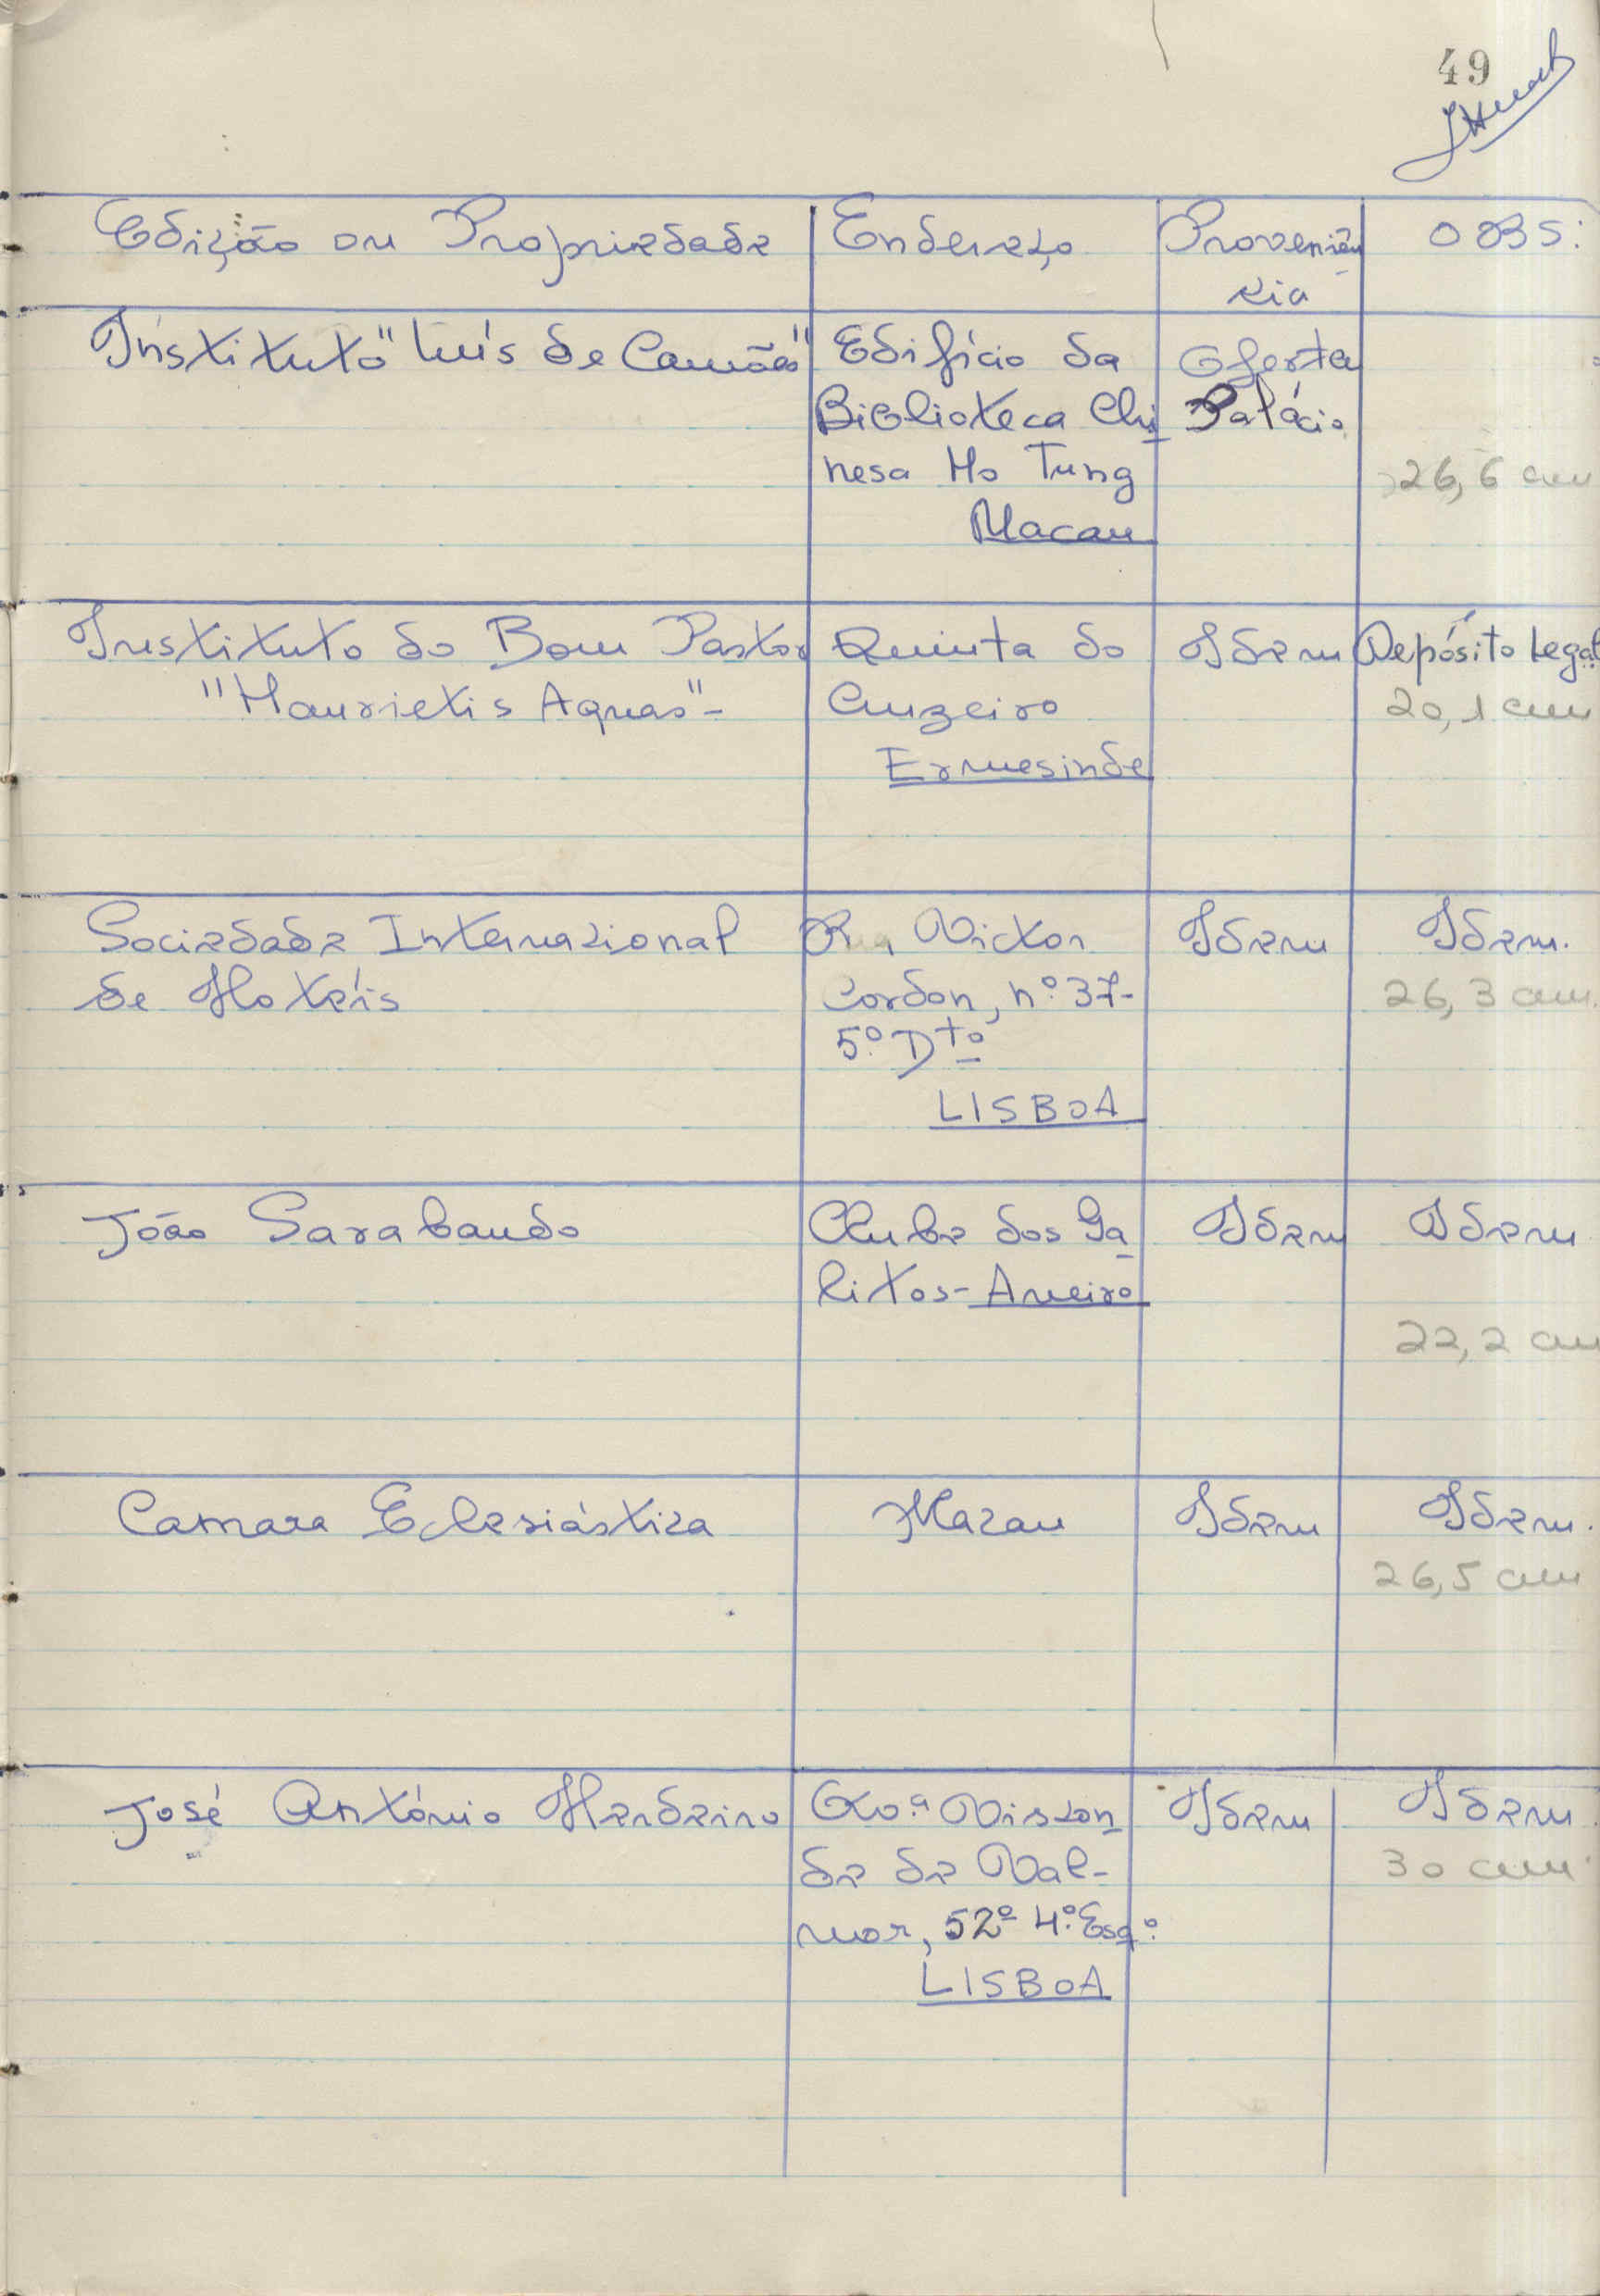 49
Edição ou Propriedade Endereço Proveniên OBS:
cia
Instituto "Luís de Camões" Edifício da Oferta
Biblioteca Chi Palácio
nesa Ho Tung 26,6 cm
Macau
Instituto do Bom Pastor Quinta do Idem Depósito Legal
"Haurietis Aquas"- Cruzeiro 20,1 cm
Ermesinde
Sociedade Internacional Rua Victor Idem Idem.
de Hotéis Cordon, nº 37- 26,3 cm.
5º Dtº
LISBOA
João Sarabando Clube dos Ga Idem Idem
litos-Aveiro
22,2 cm
Camara Eclesiástica Macau Idem Idem.
26,5 cm
José António Herdeiro Viscon Idem Idem
de de Val- 30 cm
mor, 52º 4º Esqº
LISBOA